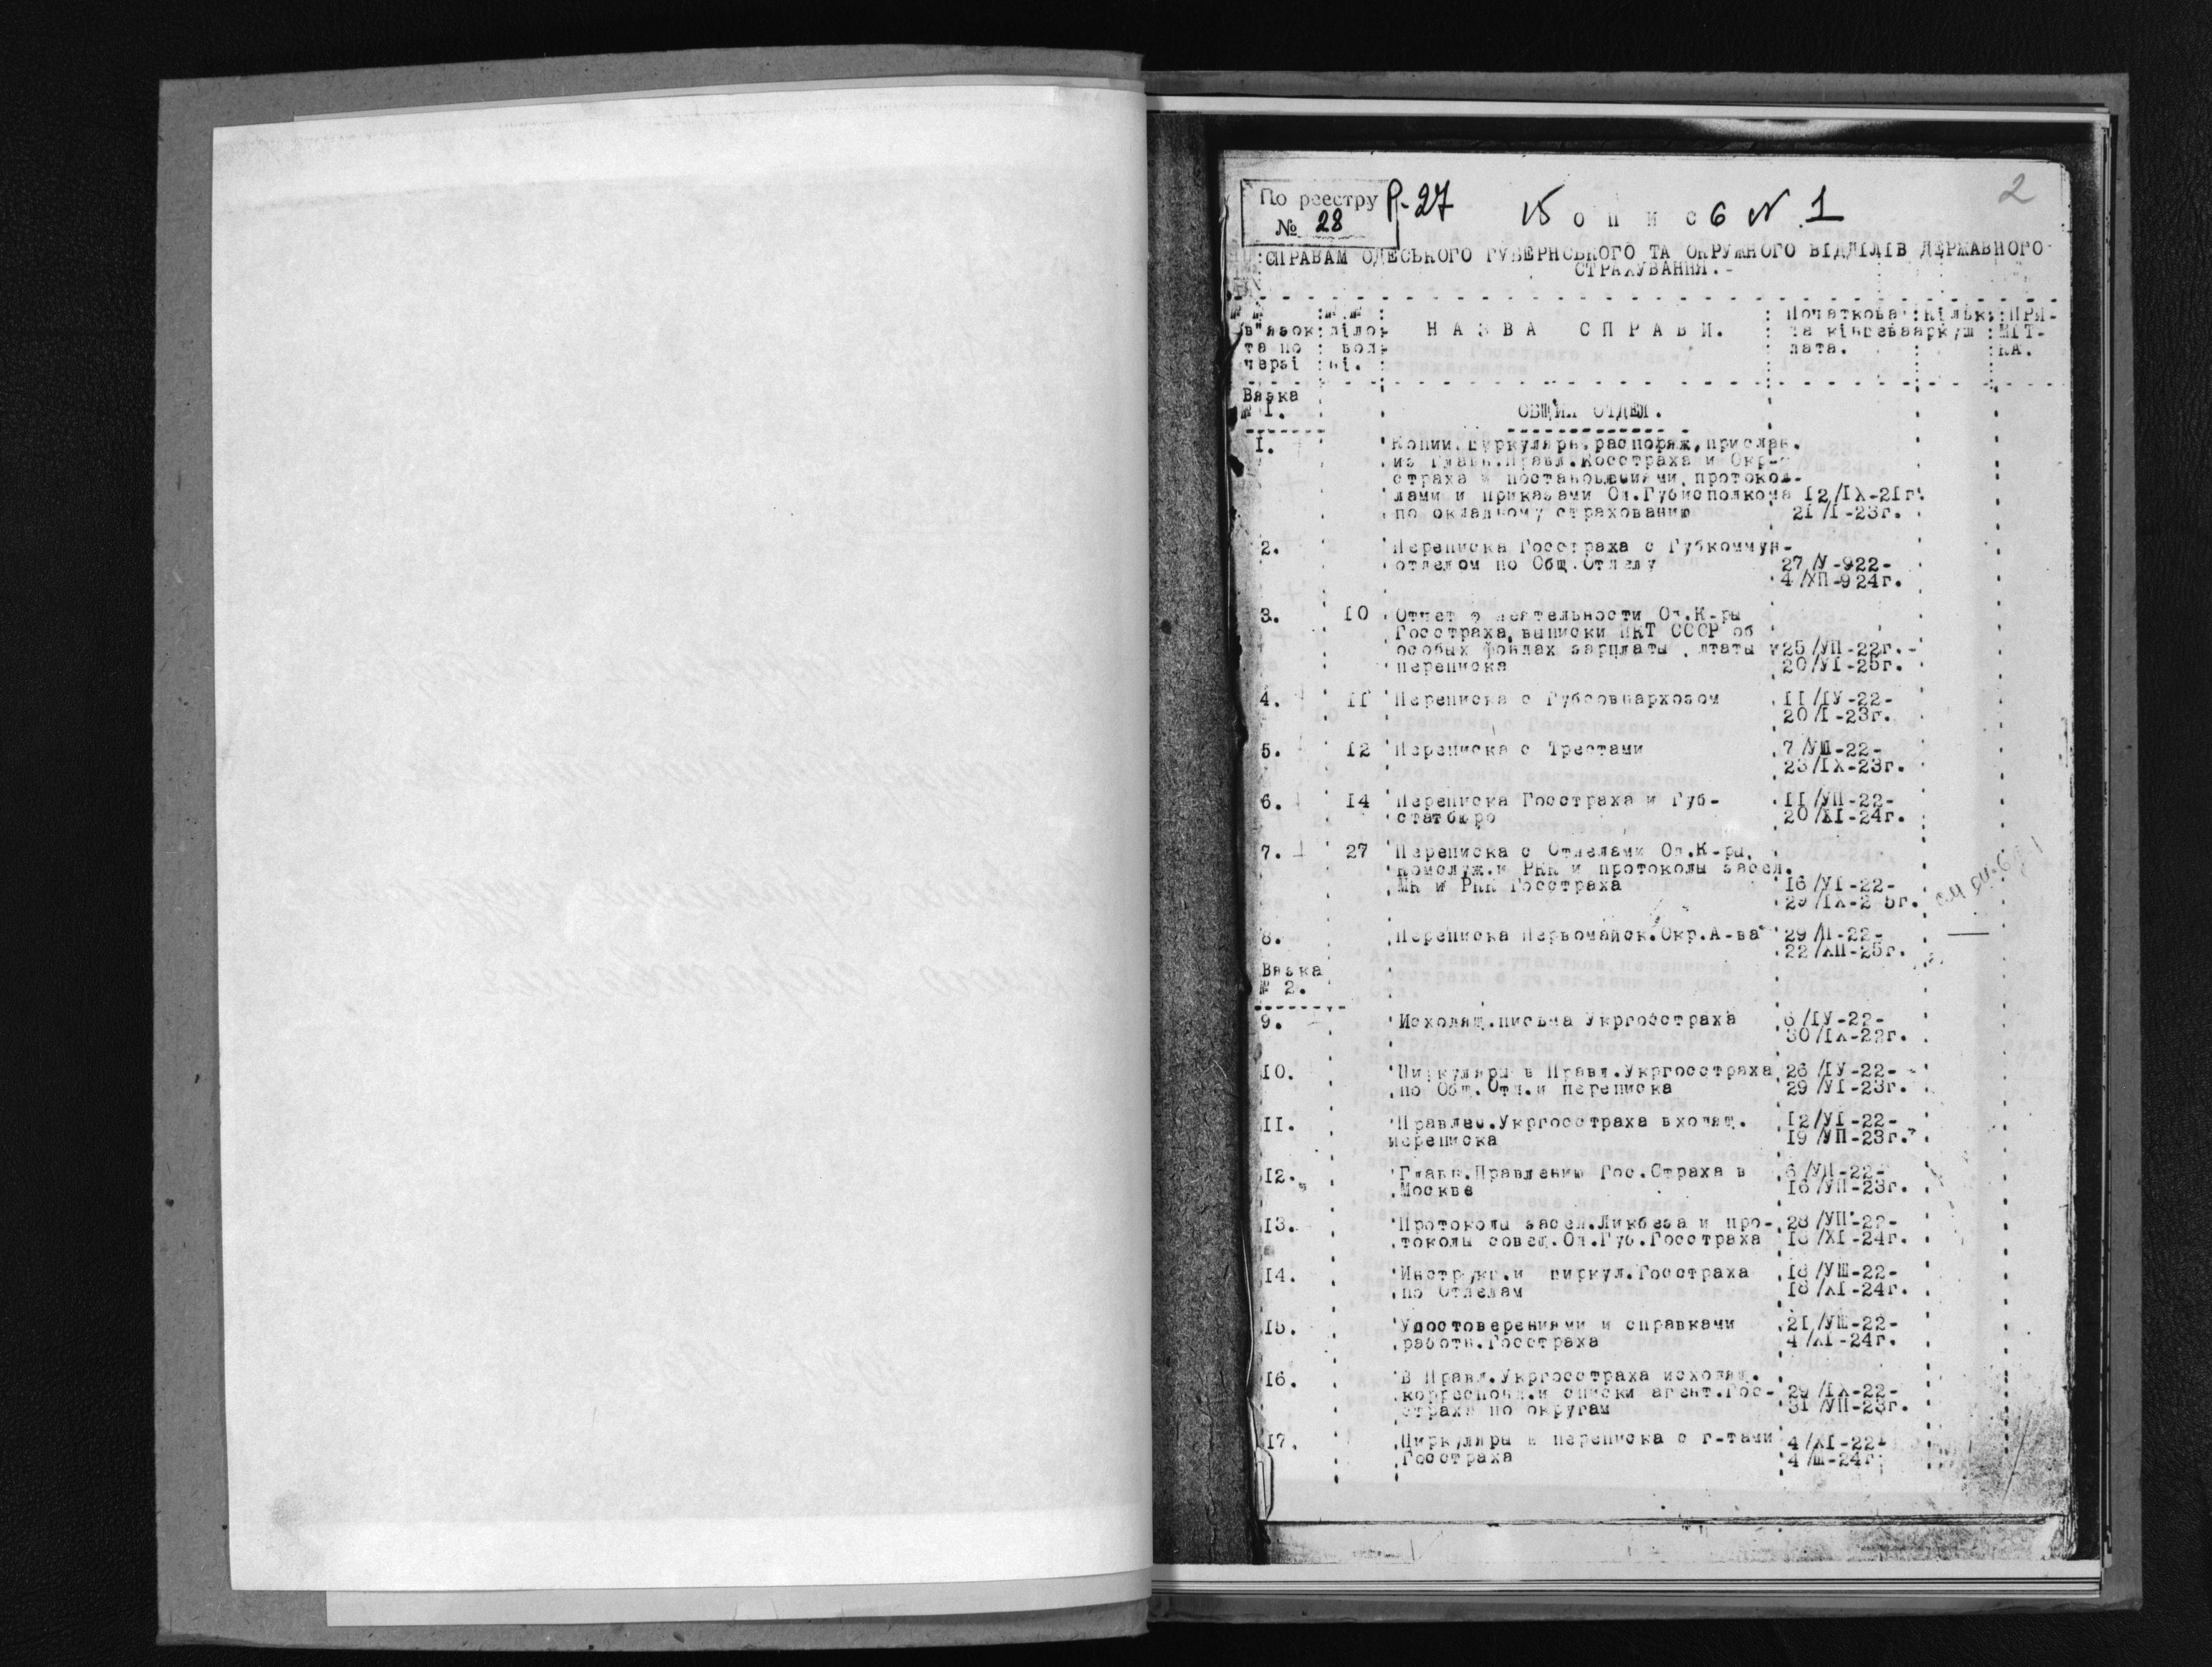 2
По реестру Р-27
№ 28
15 о п и с 6 № 1
СПРАВАМ ОДЕСЬКОГО ГУБЕРНСЬКОГО ТА ОКРУЖНОГО ВІДДІЛІВ ДЕРЖАВНОГО
СТРАХУВАННЯ.-
в"язок діло- Н А З В А С П Р А В И. Початкова Кільк. ПРИ-
та по вод- та кінцева аркуш МІТ-
черзі ні. дата. КА.
Вязка
№ 1. ОБЩИЙ ОТДЕЛ.
1. Копии, циркуляры, распоряж, прислан.
из Главн.Правл.Госстраха и Окр-
страха и постановлениями, протоко-
лами и приказами Од.Губисполкома 12/IX-21г.
по окладному страхованию 21/I-23г.
2. Переписка Госстраха с Губкоммун-
отделом по Общ.Отделу 27/У-922-
4/ХП-924г.
3. 10 Отчет о деятельности Од.К-ры
Госстраха, выписки НКТ СССР об
особых фондах зарплаты, штаты и 25/УП-22г.-
переписка 20/УI-25г.
4. 11 Переписка с Губсовнархозом 11/IУ-22-
20/I-23г.
5. 12 Переписка с Трестами 7/УШ-22-
23/IX-23г.
6. 14 Переписка Госстраха и Губ- 11/УП-22-
статбюро 20/XI-24г.
7. 27 Переписка с Отделами Од.К-ры,
комслуж.и РКК и протоколы засед.
МК и РКК Госстраха 16/УI-22-
29/IX-25г.
8. Переписка Первомайск.Окр.А-ва 29/П-22-
22/ХП-25г.
Вязка
№ 2.
9. Исходящ.письма Укргосстраха 6/IУ-22-
30/IX-22г.
10. Циркуляры в Правл.Укргосстраха 26/IУ-22-
по Общ.Отд.и переписка 29/УI-23г.
11. Правлен.Укргосстраха входящ. 12/УI-22-
переписка 19/УП-23г.
12. Главн.Правлению Гос.Страха в 6/УП-22-
Москве 16/УП-23г.
13. Протоколы засед.Ликбеза и про- 28/УП-22-
токолы совещ.Од.Губ.Госстраха 18/XI-24г.
14. Инструкц.и циркул.Госстраха 18/УШ-22-
по Отделам 18/XI-24г.
15. Удостоверениями и справками 21/УШ-22-
работн.Госстраха 4/XI-24г.
16. В Правл.Укргосстраха исходящ.
корреспонд.и списки агент.Гос- 29/IX-22-
страха по округам 31/УП-23г.
17. Циркуляры и переписка с г-тами 4/XI-22-
Госстраха 4/Ш-24г.